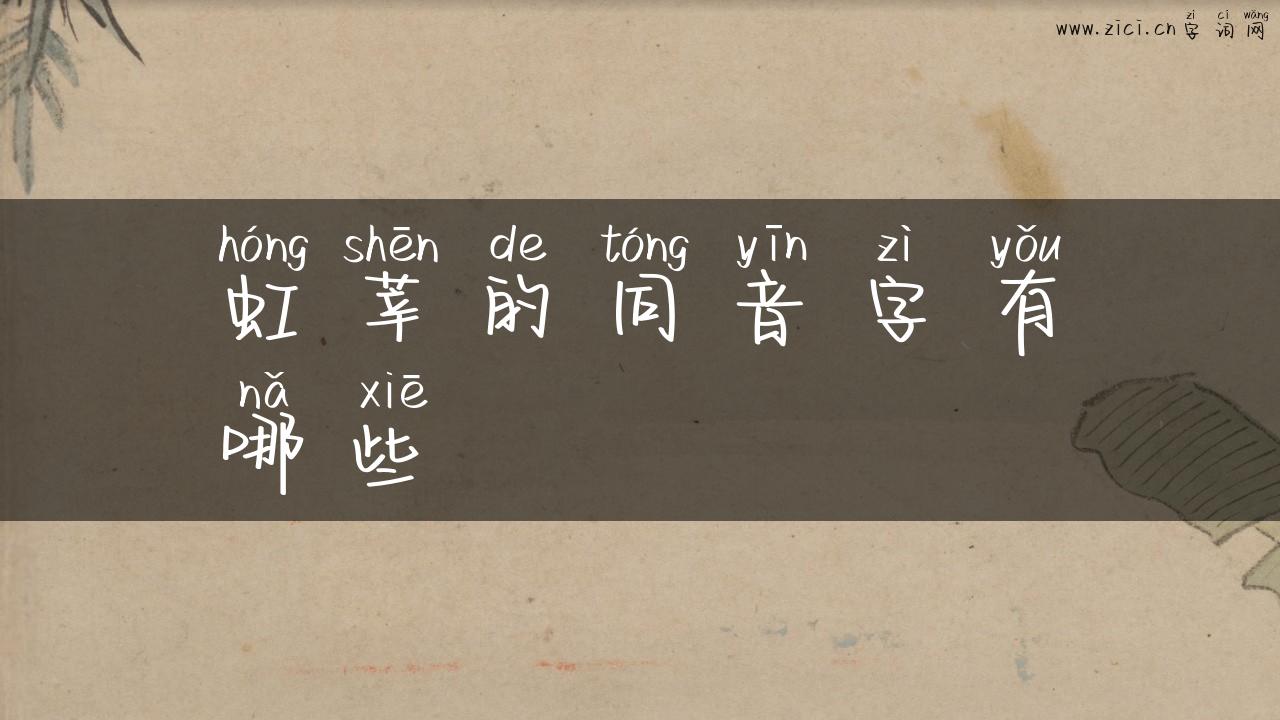 zì cí wǎng
www.zici.cn 字 词 网
hóng shēn de tóng yīn zì yǒu
虹 莘 的 同 音 字 有
nǎ xiē
哪 些